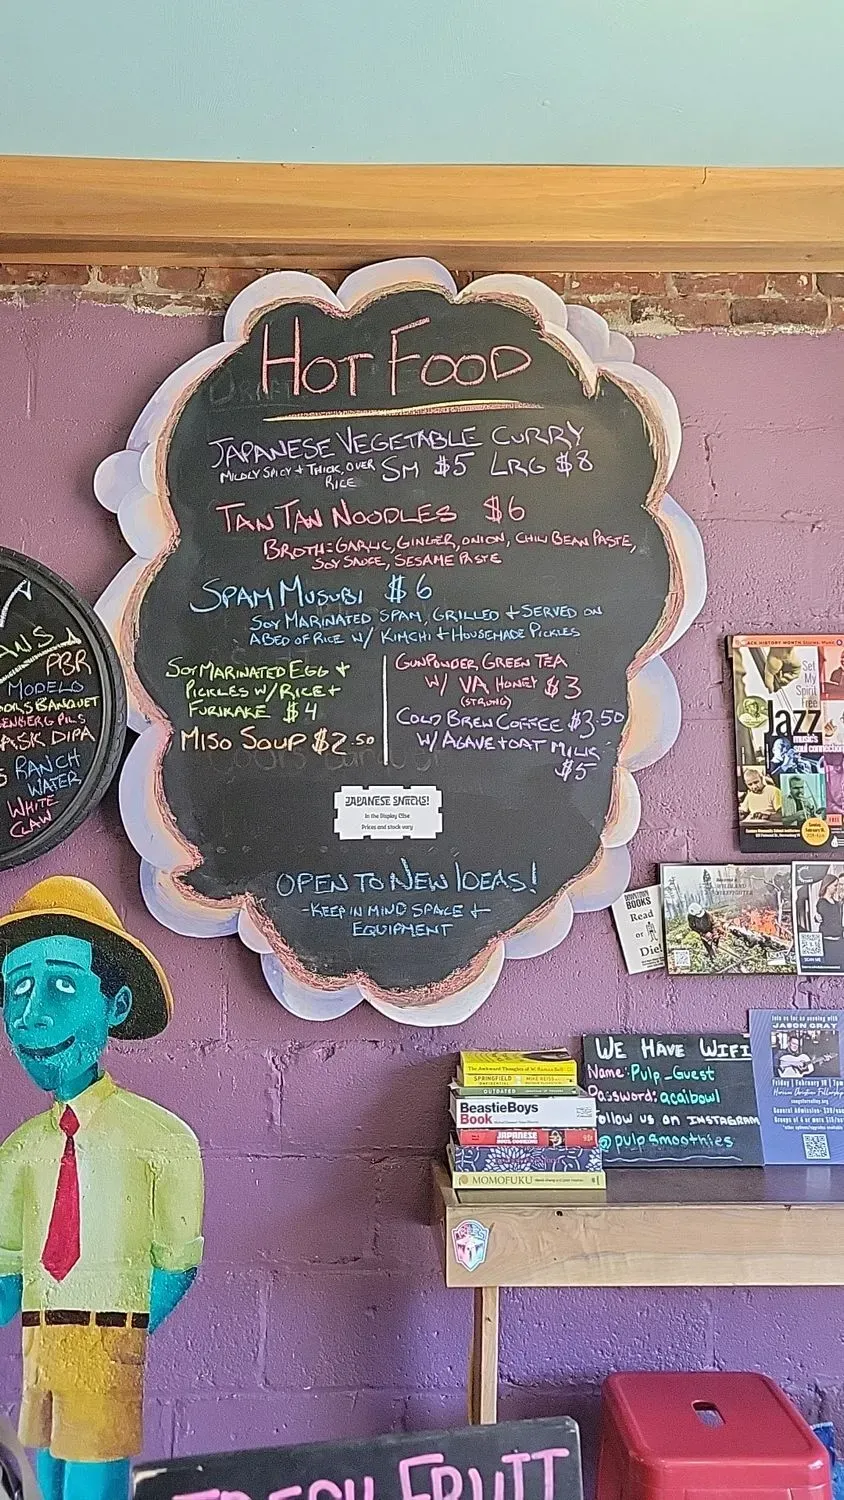 HOT FOOD
JAPANESE VEGETABLE CURRY
MILDLY SPICY + THICK, OVER RICE SM $5 LRG $8
TAN TAN NOODLES $6
BROTH: GARLIC, GINGER, ONION, CHILI BEAN PASTE,
SOY SAUCE, SESAME PASTE
SPAM MUSUBI $6
SOY MARINATED SPAM, GRILLED + SERVED ON
A BED OF RICE W/ KIMCHI + HOUSEMADE PICKLES
SOY MARINATED EGG +
PICKLES W/ RICE +
FURIKAKE $4
MISO SOUP $2.50
GUNPOWDER GREEN TEA
W/ VA HONEY $3
(STRONG)
COLD BREW COFFEE $3.50
W/ AGAVE + OAT MILK
$5
JAPANESE SNACKS!
In the Display Case
Prices and stock vary
OPEN TO NEW IDEAS!
- KEEP IN MIND SPACE +
EQUIPMENT
ANS
PBR
MODELO
BANQUET
PILS
DIPA
RANCH
WATER
WHITE
CLAW
Set
My
Spirit
Free
Jazz
music's
soul connection
FREE
DOWNTOWN
BOOKS
Read
or
Die!
FIREFIGHTER
SCAN ME
WE HAVE WIFI
Name: Pulp_Guest
Password: acaibowl
Follow us on INSTAGRAM
@pulpsmoothies
Join us for an evening with
JASON GRAY
Friday | February 16 | 7pm
The Awkward Thoughts of W. Kamau Bell
SPRINGFIELD CONFIDENTIAL MIKE REISS
OUTDATED
BeastieBoys
Book
JAPANESE
MOMOFUKU
FRESH FRUIT